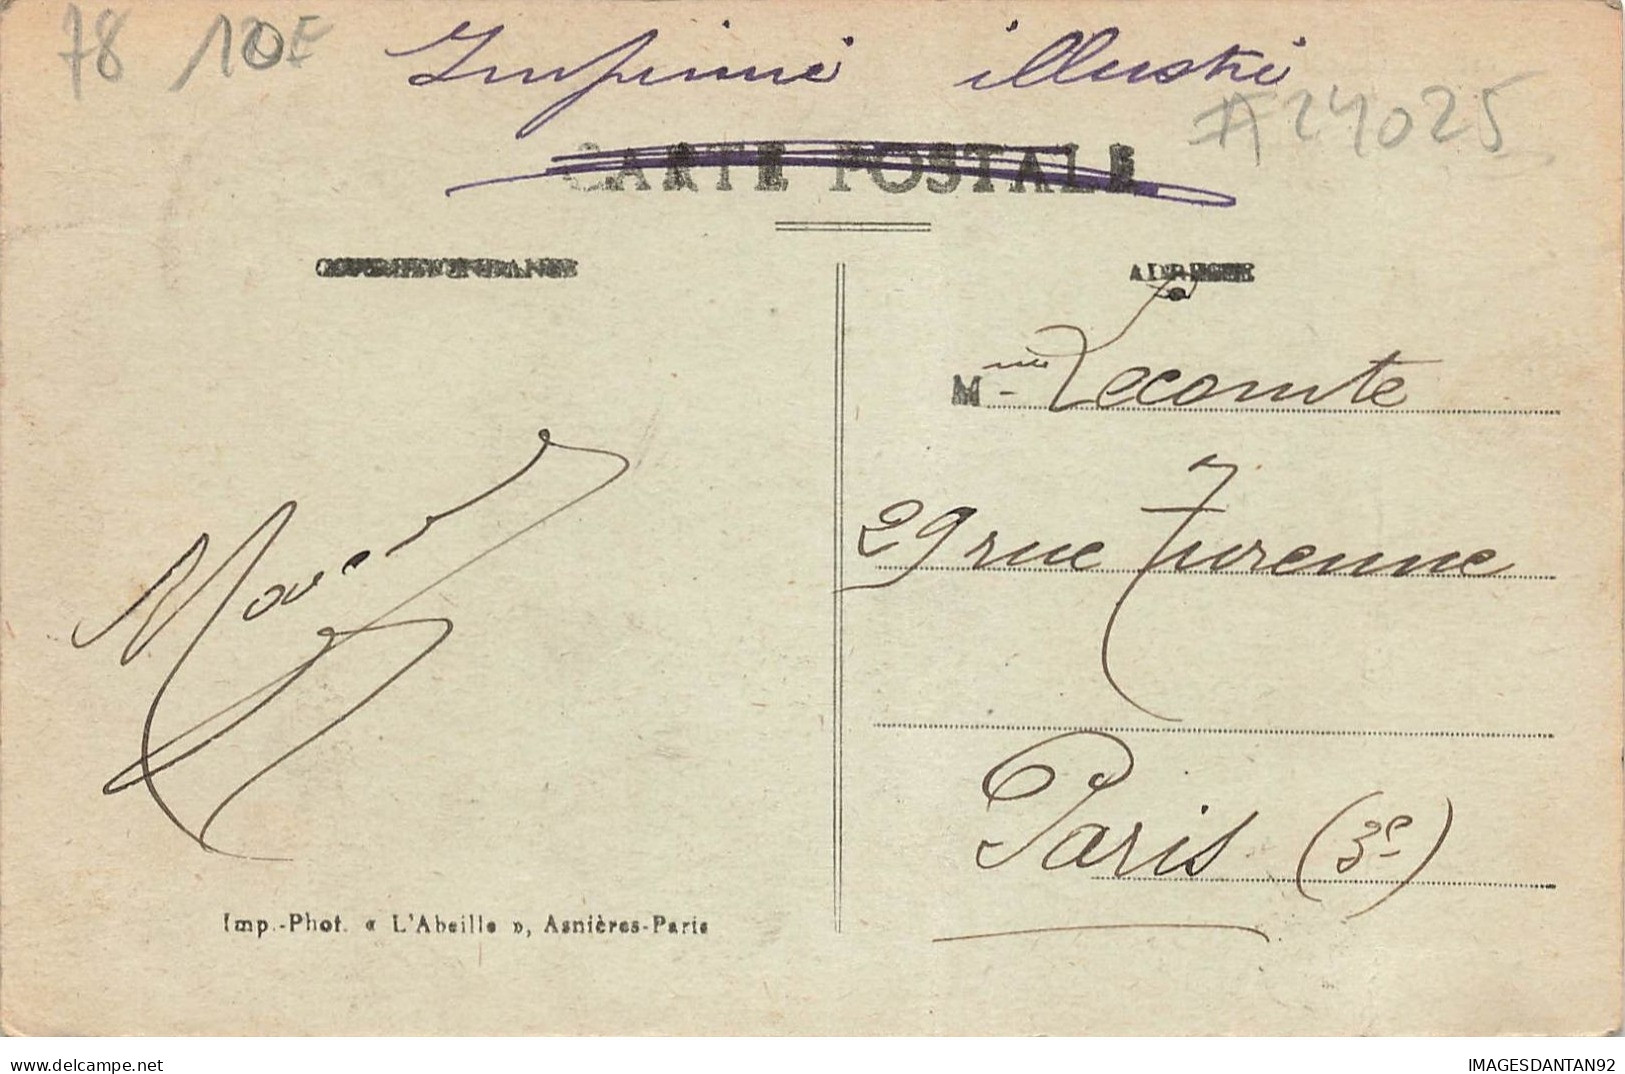 78 10E Imprimé illustré
#24025
CARTE POSTALE
CORRESPONDANCE
ADRESSE
Mme Lecomte
29 rue Turenne
Paris (3e)
Marcel
Imp.-Phot. « L'Abeille », Asnières-Paris
IMAGESDANTAN92
delcampe.net